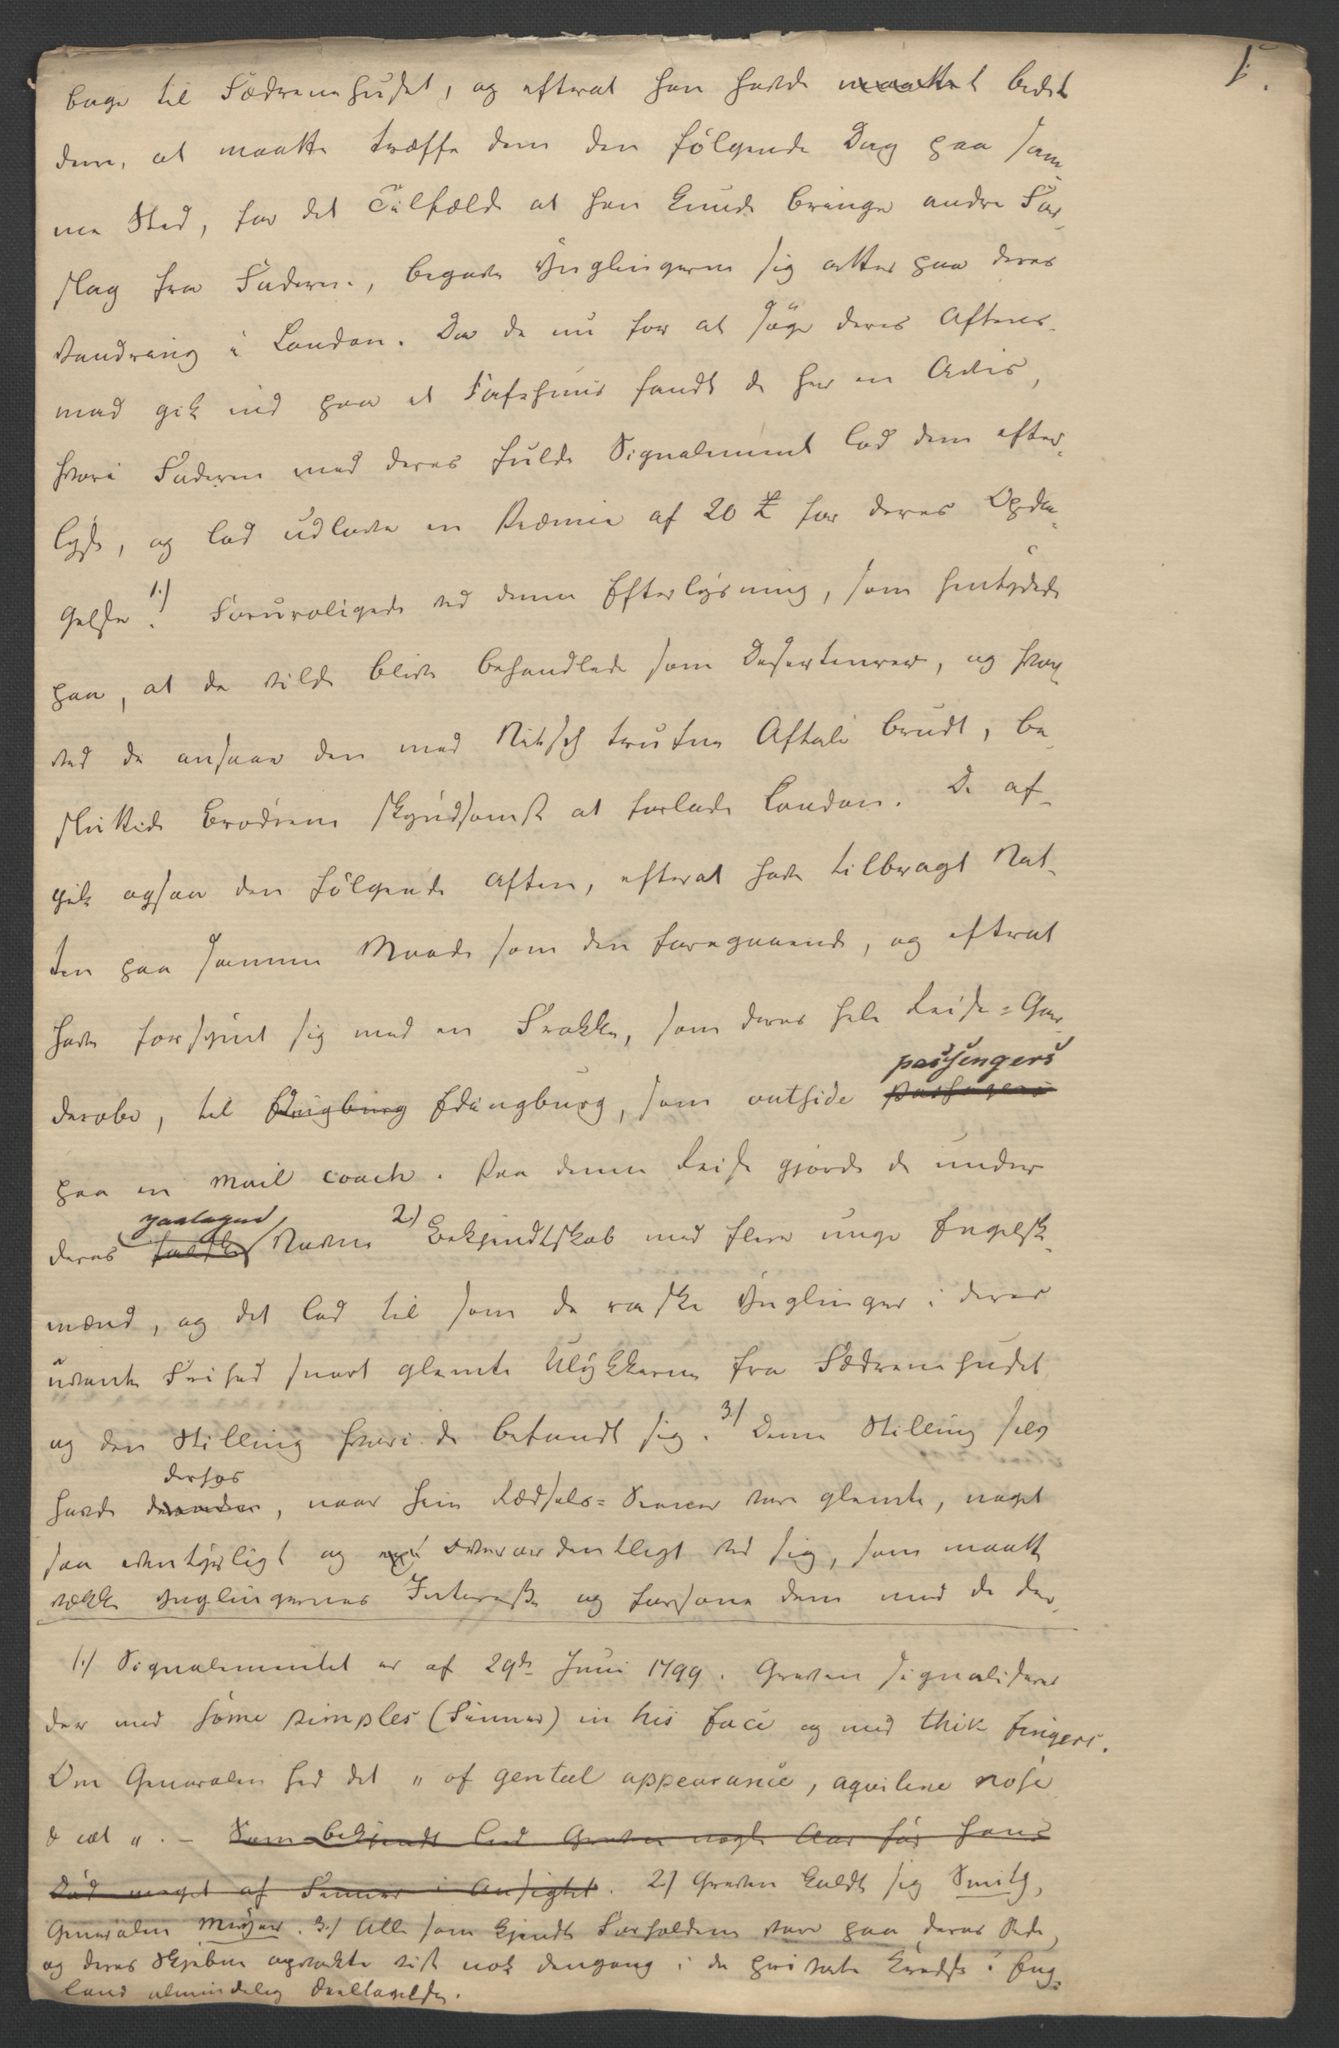 1.
bage til Fædrenehuset, og efterat han havde maattet bedet
dem, at maatte træffe dem den følgende Dag paa sam-
me Sted, for det Tilfælde at han kunde bringe andre For-
slag fra Faderen, begave Ynglingerne sig atter paa deres
Vandring i London. Da de nu for at søge deres Aftens-
mad gik ind paa et Kafehuus fandt de her en Avis,
hvori Faderen med deres fulde Signalement lod dem efter-
lyse, og lod udlove en Præmie af 20 £ for deres Opda-
gelse. 1.) Foruroligede ved denne Efterlysning, som hentydede
paa, at de vilde blive behandlede som Deserteurer, og hvor-
ved de ansaae den med Nitsch trufne Aftale brudt, be-
sluttede Brødrene skyndsomst at forlade London. De af-
gik ogsaa den følgende Aften, efterat have tilbragt Nat-
ten paa samme Maade som den foregaaende, og efterat
have forsynet sig med en Frakke, som deres hele Reise-Gar-
passengers
derobe, til Edingburg, som outside
paa en mail coach. Paa denne Reise gjorde de under
paatagne
deres falske Navne 2.) Bekjendtskab med flere unge Engelsk-
mænd, og det lod til som de raske Ynglinger i deres
uvante Frihed snart glemte Ulykkerne fra Fædrenehuset
og den Stilling hvori de befandt sig. 3.) Denne Stilling selv
derhos
havde desuden, naar hine Rædsels-Scener vare glemte, noget
saa eventyrligt og overordentligt ved sig, som maatte
vække Ynglingernes Interesse og forsone dem med de der-
1.) Signalementet er af 29de Juni 1799. Greven signaliseres
der med some pimples (Finner) in his face og med thik fingers.
Om Generalen hed det „ of genteel appearance, aquilene nose
& cet „. — Som bekjendt led Greven nogle Aar før hans
Død meget af Finner i Ansigtet. 2.) Greven kaldte sig Smith,
Generalen Meyer. 3.) Alle som kjendte Forholdene vare paa deres Side,
og deres Skjæbne opvakte vist nok dengang i de private Kredse i Eng-
land almindelig Deeltagelse.